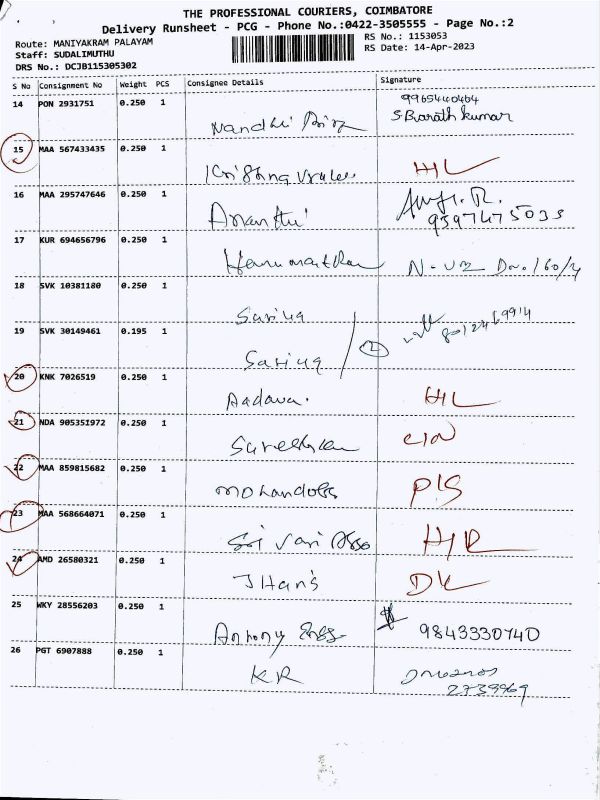 THE PROFESSIONAL COURIERS, COIMBATORE
Delivery Runsheet - PCG - Phone No.:0422-3505555 - Page No.:2
Route: MANIYAKRAM PALAYAM
RS No.: 1153053
Staff: SUDALIMUTHU
RS Date: 14-Apr-2023
DRS No.: DCJB115305302
S No Consignment No Weight PCS Consignee Details Signature
14 PON 2931751 0.250 1 9965440464
S Barath Kumar
15 MAA 567433435 0.250 1 H/L
16 MAA 295747646 0.250 1 Ananthi
17 KUR 694656796 0.250 1
18 SVK 10381180 0.250 1 Sariua
19 SVK 30149461 0.195 1 Sariua 2
20 KNK 7026519 0.250 1 Aadava. H/L
21 NDA 905351972 0.250 1
22 MAA 859815682 0.250 1 P/S
23 MAA 568664071 0.250 1 Sri Vari
24 AMD 26580321 0.250 1 Jhan's D/L
25 WKY 28556203 0.250 1 Antony 9843330740
26 PGT 6907888 0.250 1 KR
2739969